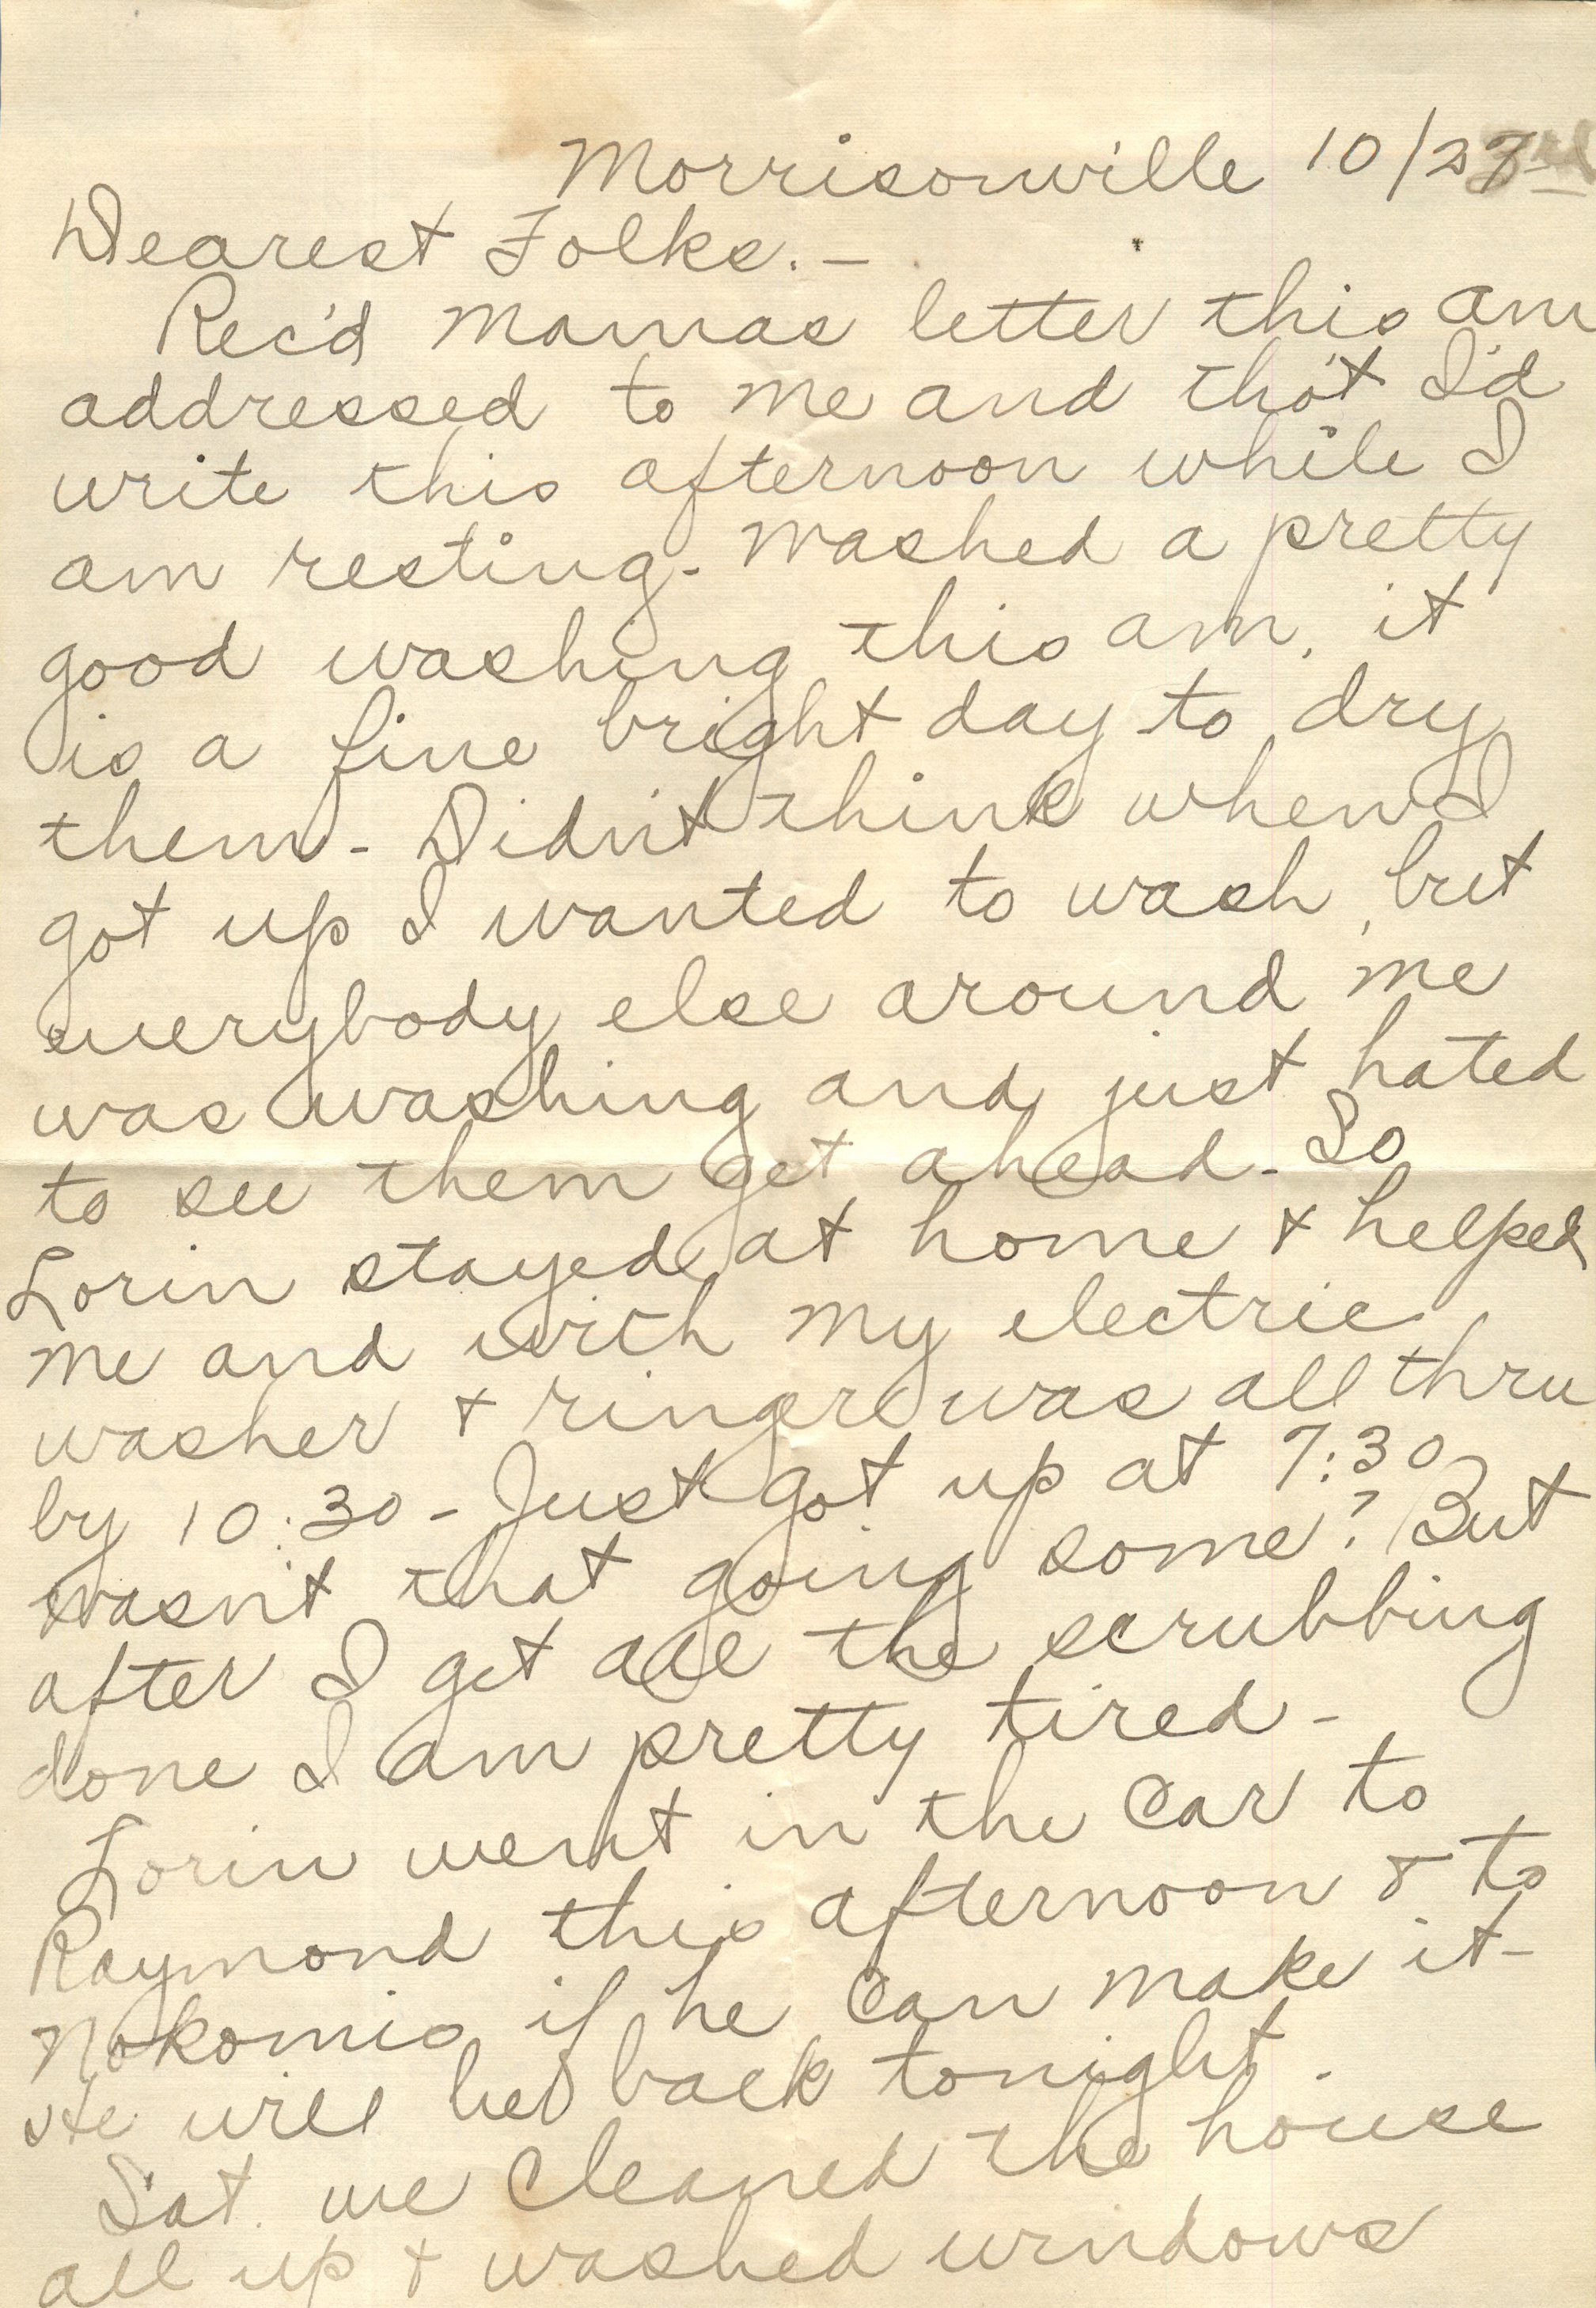 Morrisonville 10/27
Dearest Folks. –
Rec'd Mamas letter this am
addressed to me and tho't I'd
write this afternoon while I
am resting - Washed a pretty
good washing this am, it
is a fine bright day to dry
them - Didn't think when I
got up I wanted to wash, but
everybody else around me
was washing and just hated
to see them get ahead - So
Lorin stayed at home & helped
me and with my electric
washer & ringer was all thru
by 10:30 - Just got up at 7:30
wasn't that going some? But
after I get all the scrubbing
done I am pretty tired -
Lorin went in the car to
Raymond this afternoon & to
Nokomis if he can make it -
He will be back tonight.
Sat. we cleaned the house
all up & washed windows